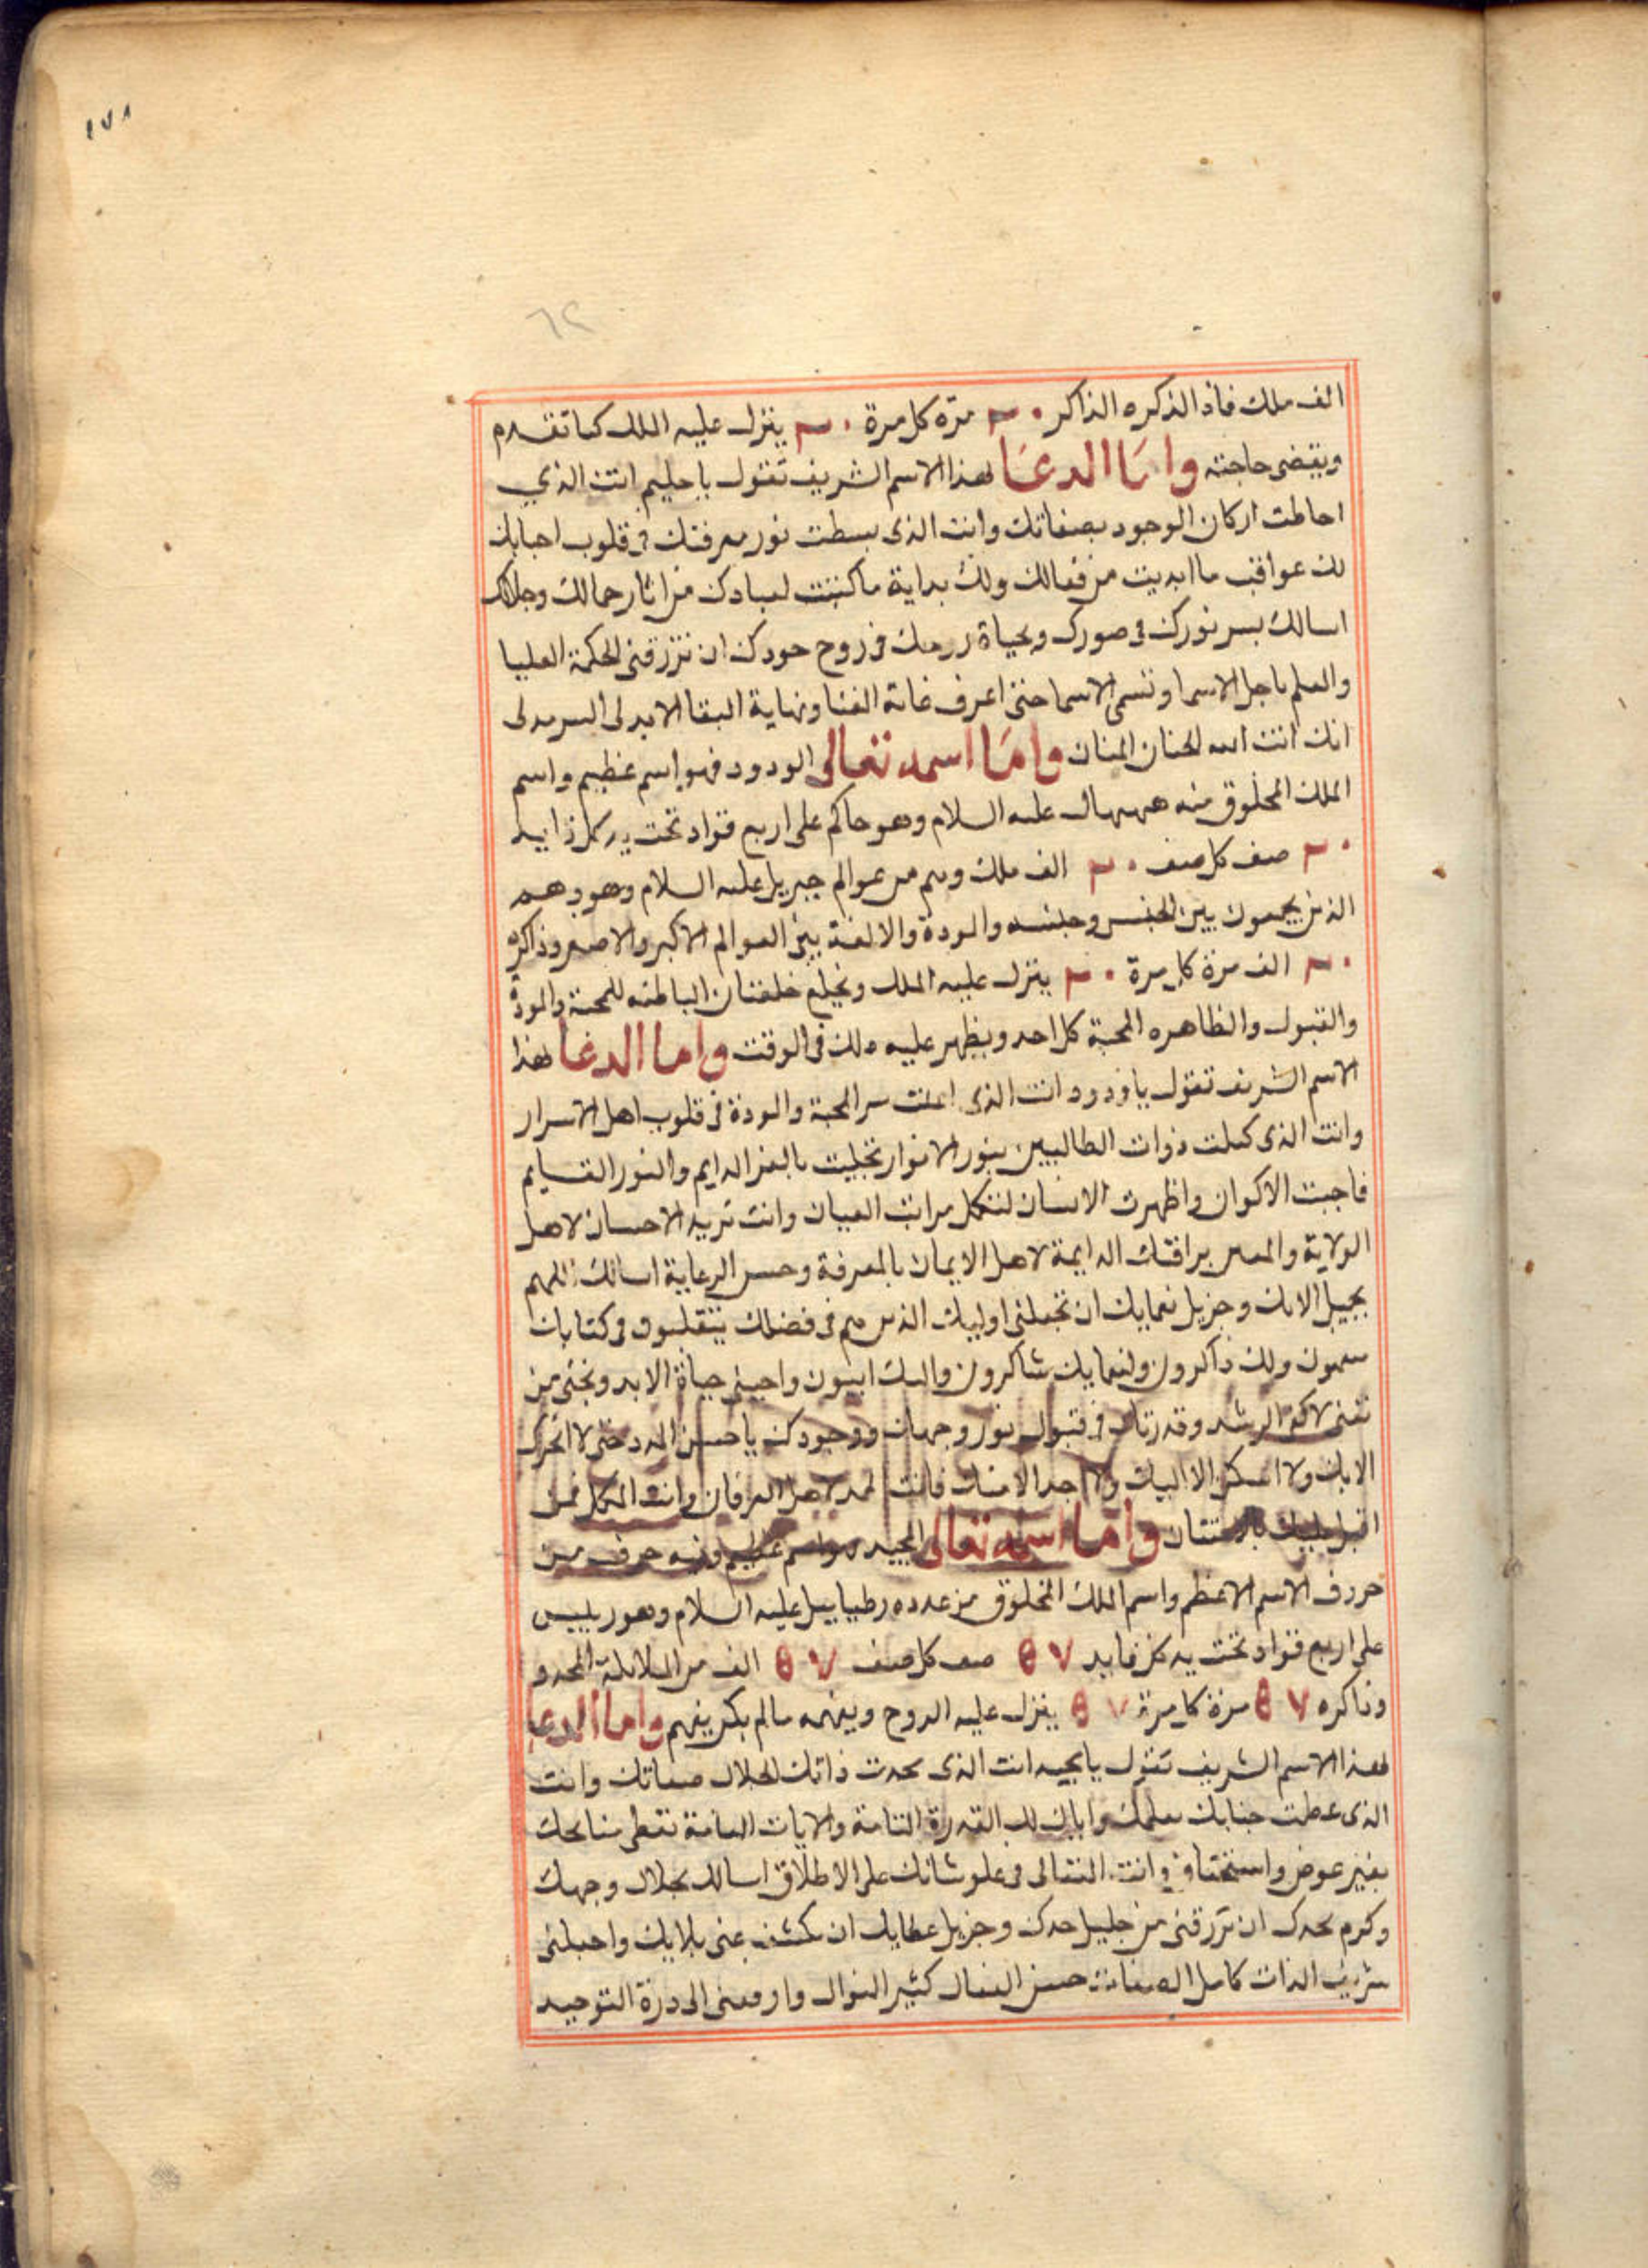 ١٧٨
٦٢
الف ملك فاذا لذكره الذاكر ٢٠ مرّه كل مرة ٢٠ ينزل عليه الملك كما تقدم
ويقضى حاجته واما الدعا لهذا الاسم الشريف تقول يا حليم انت الذي
احاطت اركان الوجود بصفاتك وانت الذى بسطت نور معرفتك فى قلوب احبابك
لك عواقب ما ابديت من فعالك ولك بداية ما كتبت لعبادك من اثار جمالك وجلالك
اسالك بسر نورك فى صورك وبحياة روحك فى روح جودك ان ترزقنى الحكمة العليا
والعلم باجل الاسما وتسمى الاسما حتى اعرف غاية الفنا ونهاية البقا الابدى السرمدى
انك انت الله الحنان المنان واما اسمه تعالى الودود فهو اسم عظيم واسم
الملك المخلوق منه ههيهال عليه السلام وهو حاكم على اربع قواد تحت يد كل قايد
٢٠ صف كل صف ٢٠ الف ملك وهم من عوالم جبريل عليه السلام وهو وهم
الذين يجمعون بين الجنس وجنسه والمودة والالفة بين العوالم الاكبر والاصغر وذاكره
٢٠ الف مرة كل مرة ٢٠ ينزل عليه الملك ويخلع خلعتان الباطنه للمحبة والمودة
والقبول والظاهره المحبة كل احد ويظهر عليه ذلك فى الوقت واما الدعا لهذا
الاسم الشريف تقول يا ودود انت الذى اعلنت سر المحبة والمودة فى قلوب اهل الاسرار
وانت الذى كملت ذوات الطالبين بنور الانوار تجليت بالعز الدايم والنور القايم
فاجبت الاكوان واظهرت الانسان لتكمل مراتب العيان وانت تريد الاحسان لاهل
الولاية برافتك الدايمة لاهل الايمان بالمعرفة وحسن الرعاية اسالك اللهم
بجميل الايك وجزيل نعمايك ان تجعلنى اوليك الذين هم فى فضلك يتقلبون وكتابك
ولك ذاكرون ولنعمايك شاكرون واليك ايبون واحينى حياة الابد ونجنى من
الرشد فى قبول نور وجهك ووجودك يا حسن المدد حتى لا اتحرك
الا بك ولا اسكن الا اليك ولا اجد الا منك فانت لاهل العرفان وانت المكمل لمن
اقبل اليك بالامتنان واما اسمه تعالى المجيد هو اسم عظيم وفيه حرف من
حروف الاسم الاعظم واسم الملك المخلوق من عدده رطيابيل عليه السلام وهو رييس
على اربع قواد تحت يد كل قايد ٥٧ صف كل صف ٥٧ الف من الملايكة
وذاكره ٥٧ مرة كل مرة ٥٧ ينزل عليه الروح ويفهمه ما لم يكن يفهم واما الدعا
لهذا الاسم الشريف تقول يا مجيد انت الذى مجدت ذاتك لجلال صفاتك وانت
الذى عظمت جنابك القدرة التامة والايات العامة تعطى منايحك
بغير عوض واستحقاق وانت المتعالى فى علو شانك على الاطلاق اسالك بجلال وجهك
وكرم مجدك ان ترزقنى من جليل وجزيل عطايك ان تكشف عنى بلايك واجعلنى
شريف الذات كامل الصفات حسن الفعال كثير النوال وارفعنى الى درة التوحيد